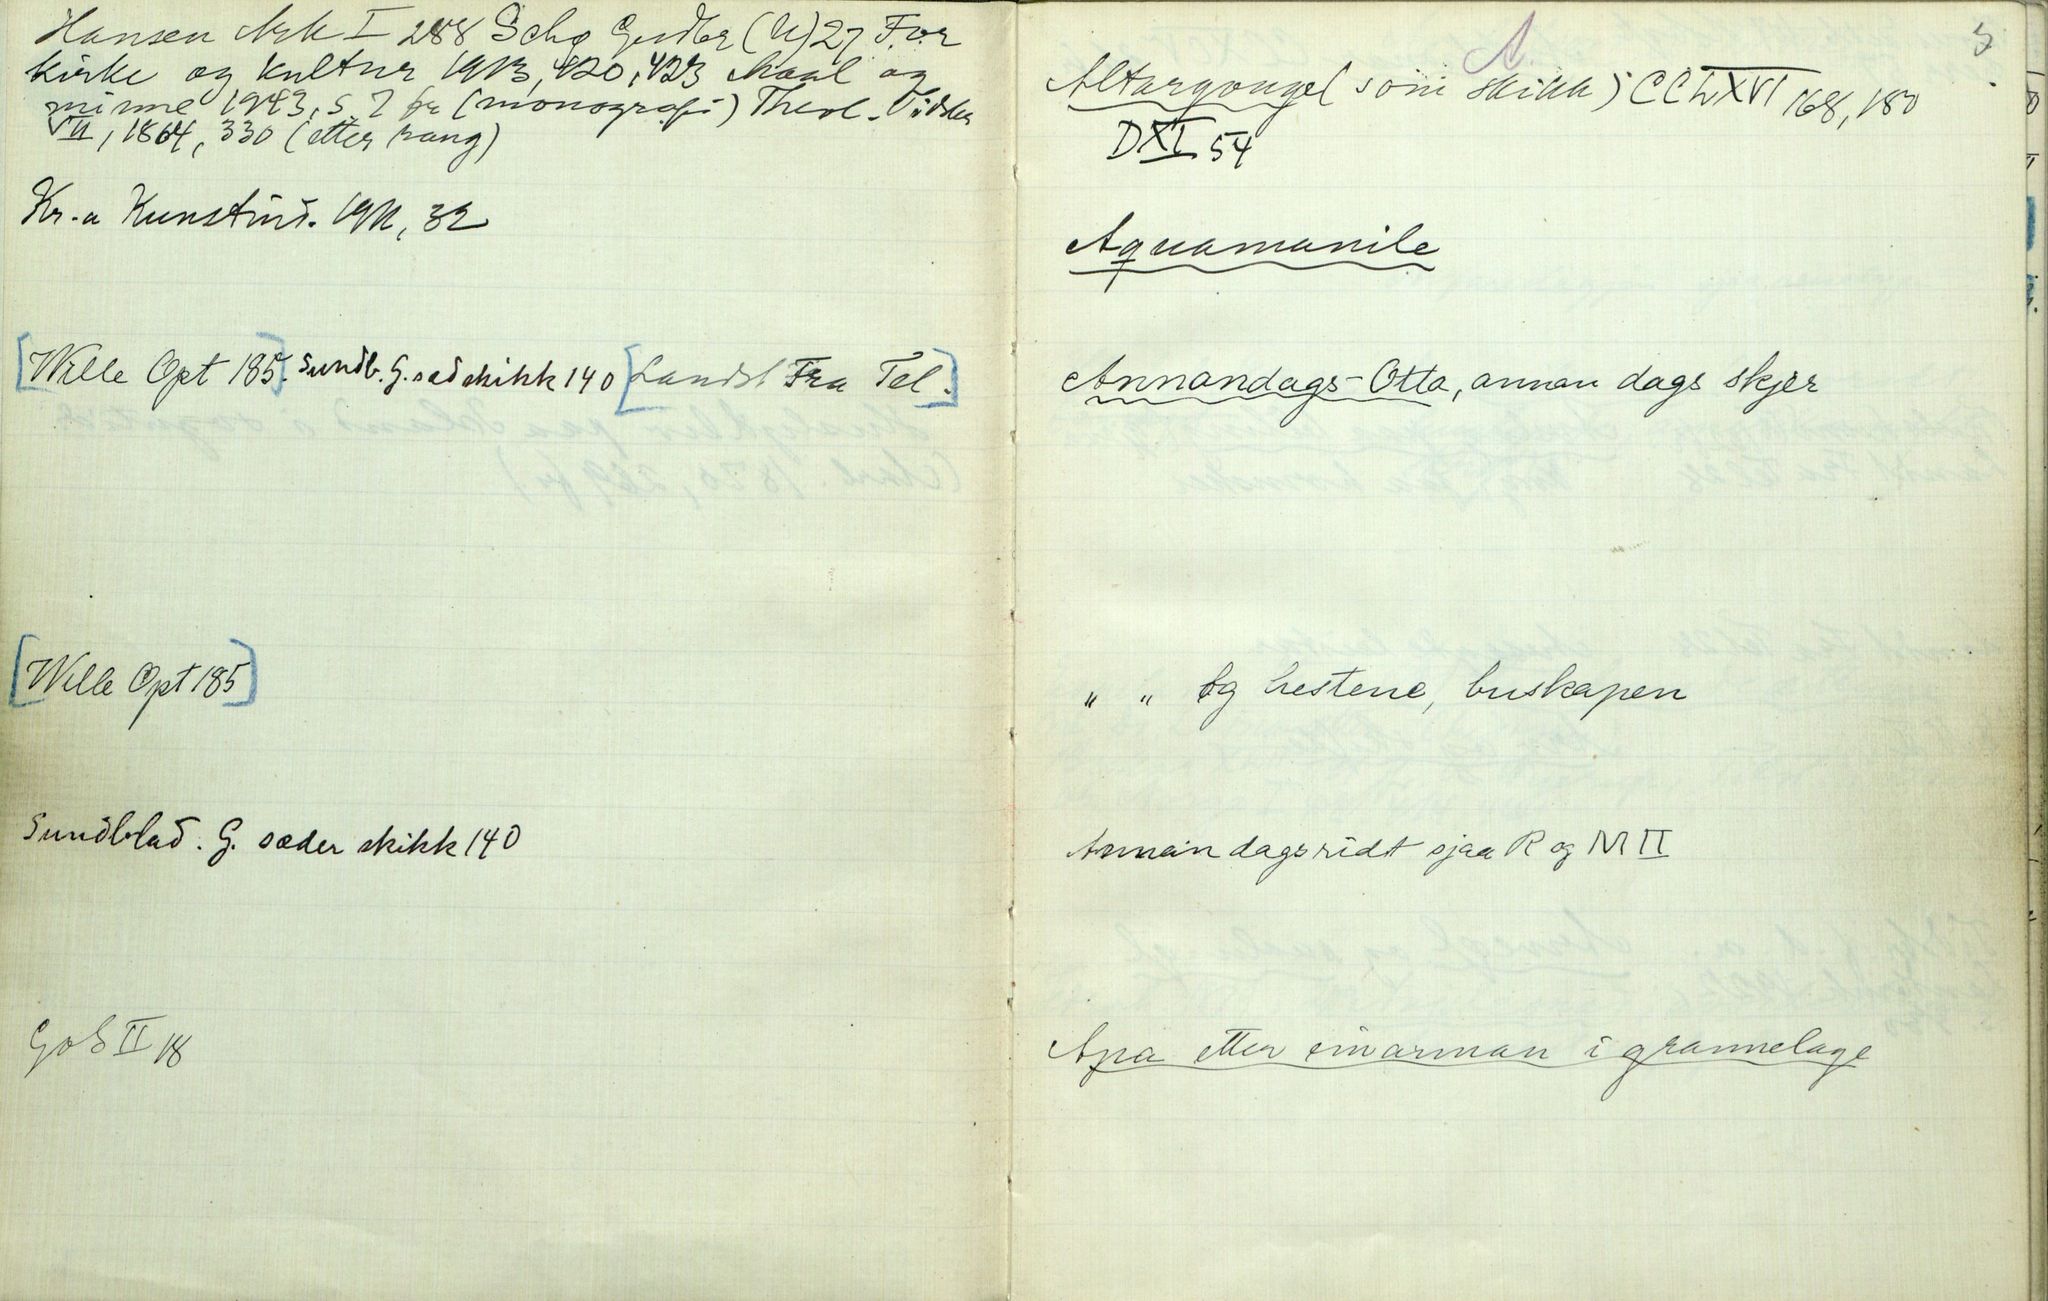 Hansen Ark I 288 Sehg Gudbr (U) 27 For
kirke og kultur 1913, 420, 423 Maal og
minne 1943, s. 7 fr (monografi) Theol. Tidskr
VII, 1864, 330 (etter rang)
Kr.a Kunstind. 1911, 32
[Wille Opt 185]. Sundb. G. sed skikk 140 [Landst Fra Tel.]
[Wille Opt 185]
Sundblad. G. seder skikk 140
GoS II 18
A
5
Altargonge (som skikk) CCLXVI 168, 180
DXI 54
Aquamanile
Annandags-Otta, annan dags skjer
" " og hestene, buskapen
Annan dagsridt sjaa R og M II
Apa etter einannan i grannelage